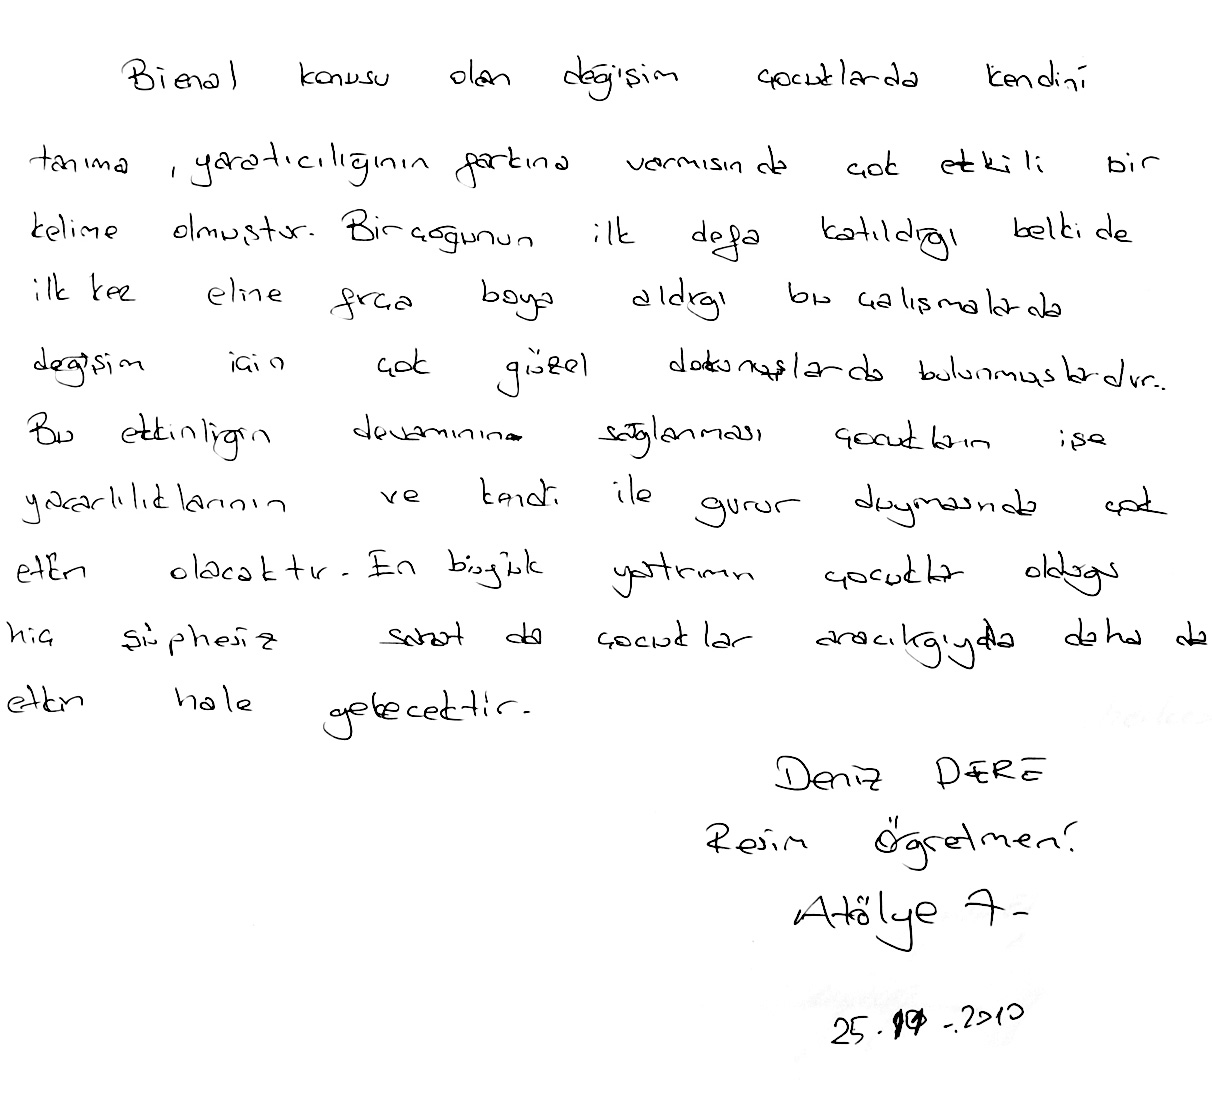 Bienal konusu olan değişim çocuklarda kendini
tanıma, yaratıcılığının farkına varmısında çok etkili bir
kelime olmuştur. Birçoğunun ilk defa katıldığı belki de
ilk kez eline fırça boya aldığı bu çalışmalarda
değişim için çok güzel dokunuşlarda bulunmuşlardır..
Bu etkinliğin devamının sağlanması çocukların işe
yararlılıklarının ve kendi ile gurur duymasında çok
etkin olacaktır. En büyük yatırımın çocuklar olduğu
hiç şüphesiz sanat da çocuklar aracılığıyla daha da
etkin hale gelecektir.
Deniz DERE
Resim Öğretmeni
Atölye 7-
25. -.2010